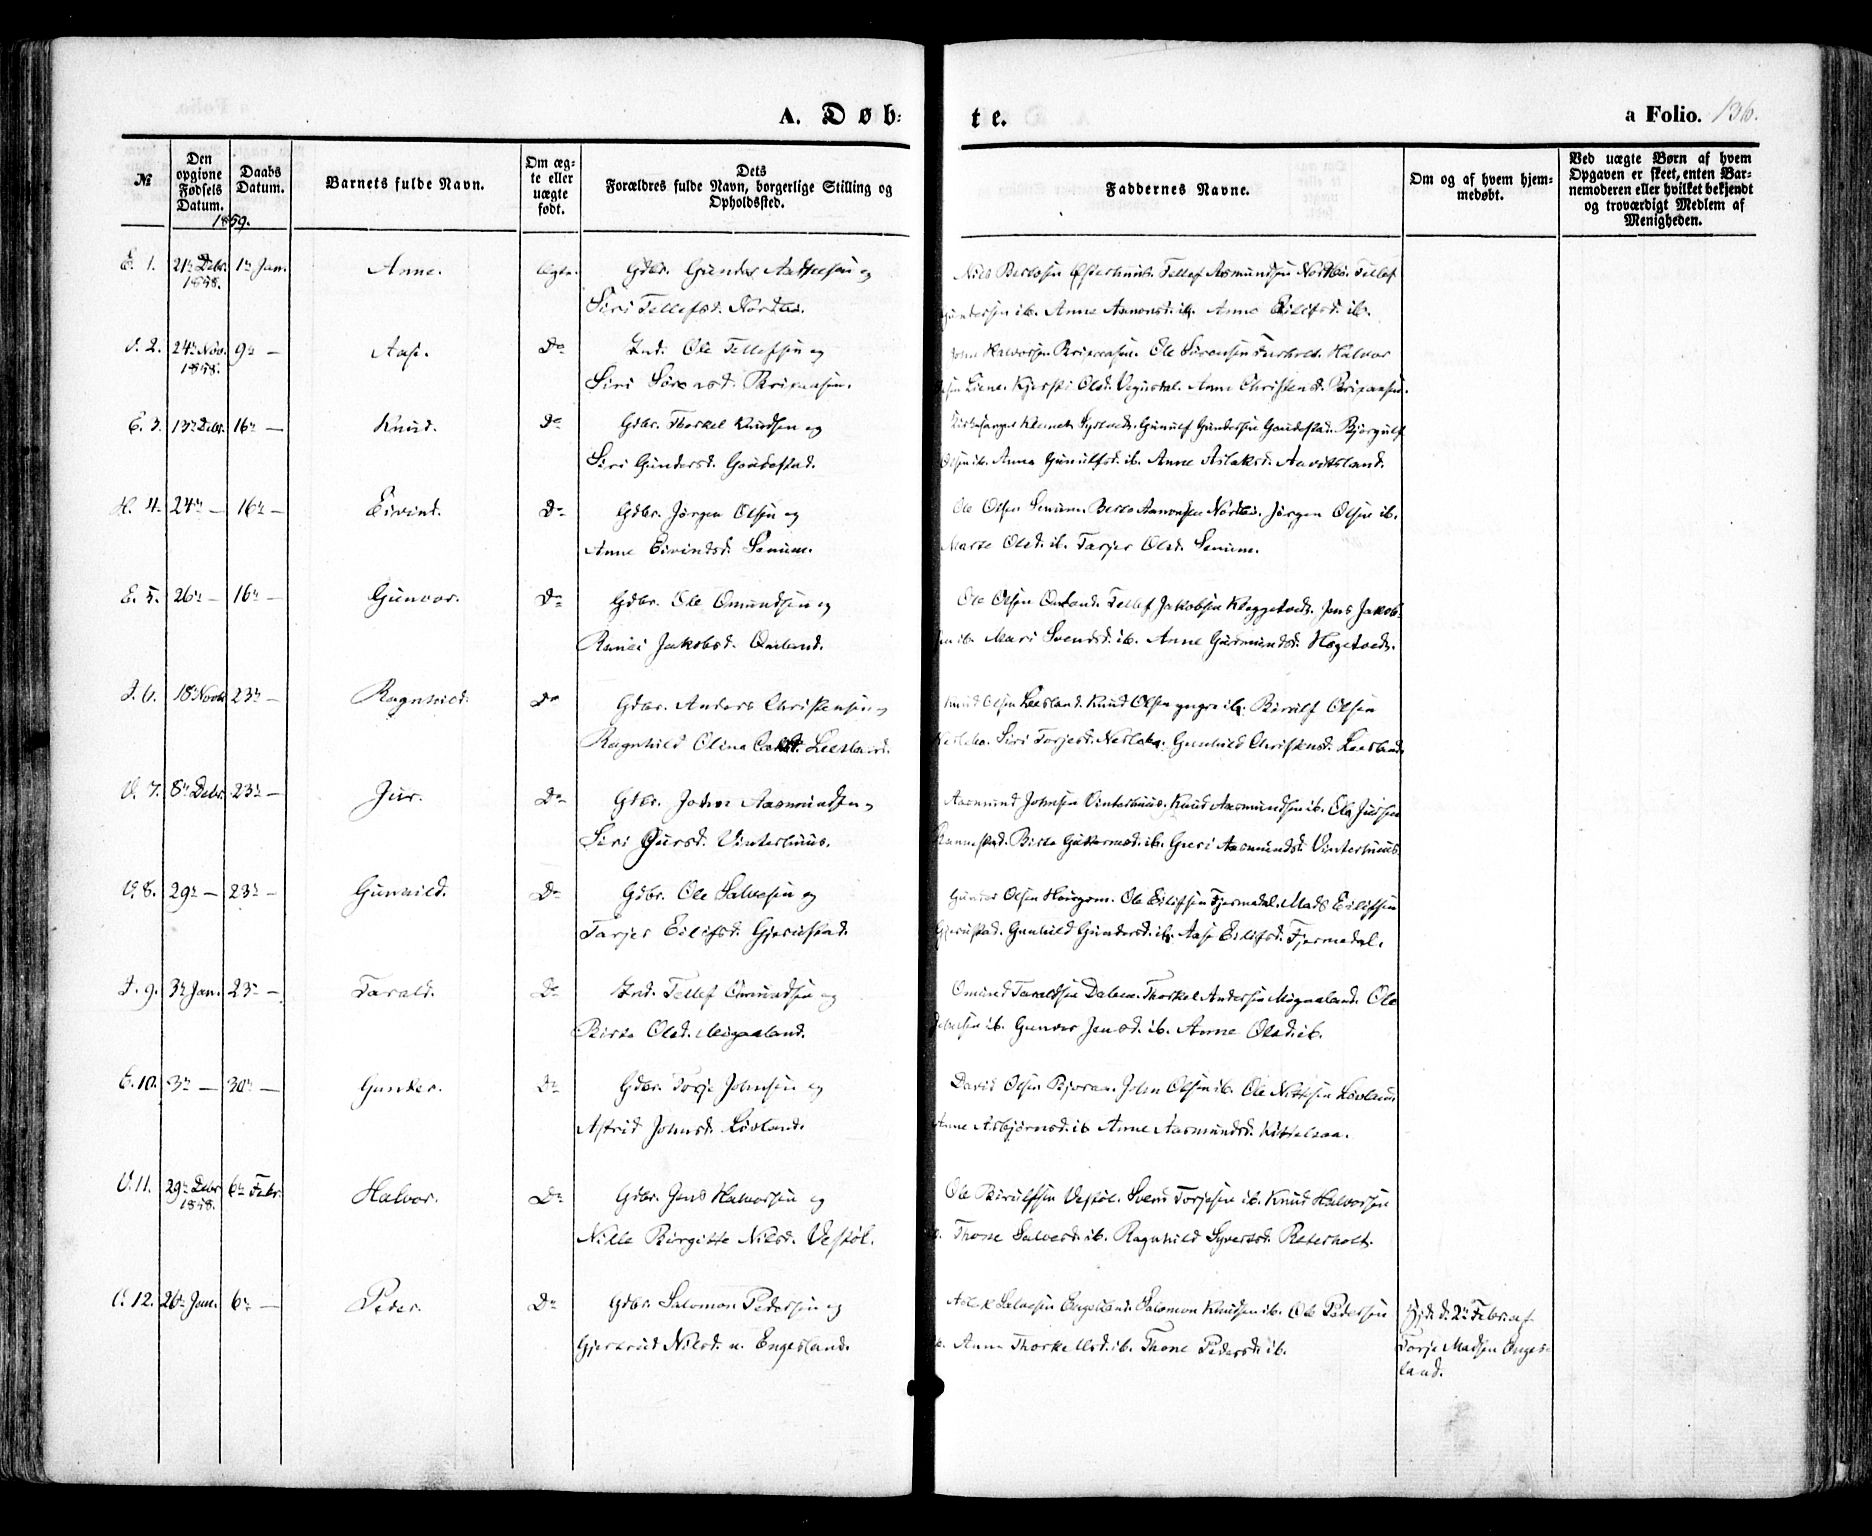 A. Døb-
te.
a Folio. 136.
№
Den opgivne Fødsels Datum.
Daabs Datum.
Barnets fulde Navn.
Om ægte eller uægte født.
Dets Forældres fulde Navn, borgerlige Stilling og Opholdssted.
Faddernes Navne.
Om og af hvem hjemmedøbt.
Ved uægte Børn af hvem Opgaven er skeet, enten Barnemoderen eller hvilket bekjendt og troværdigt Medlem af Menigheden.
1859.
E. 1. 21de Debr. 1ste Jan. Anne. ægte. Gdbr. Gunder og Niels Osterhuus. Tellef Asmundsen Nordbø. Tellef
1858. Siri Tellefsd. Nordbø. Gundersen ib. Anne Aanonsd. ib. Anne Eilifsd. ib.
V. 2. 24de Nov. 9de — Aase. Do Ind. Ole Tellefsen og John Halvorsen Ole Sørensen Halvor
1858. Siri Sørensd. Liene. Kjersti Olsd. Anne Christensd.
E. 3. 13de Debr. 16de — Knud. Do Gdbr. Thorkel Knudsen og Gunulf Gundersen Goudestad. Bjorgulf
Siri Gundersd. Goudestad. Olsen ib. Anna Gunulfsd. ib. Anne Aslaksd. Aavitsland.
H. 4. 24de — 16de — Eivind. Do Gdbr. Jørgen Olsen og Ole Olsen Senum. Aanonsen Nordbø. Jørgen Olsen ib.
Anne Eivindsd. Senum. Marte Olsd. ib. Tarjer Olsd. Senum.
E. 5. 26de — 16de — Gunvor. Do Gdbr. Ole Omundsen og Ole Olsen Omland. Tellef Jakobsen Jens Jakob-
Jakobsd. Omland. sen ib. Mari Svendsd. ib. Anne Gudmundsd.
I. 6. 18de Novbr 23de — Ragnhild. Do Gdbr. Anders Christensen og Knud Olsen Leesland. Knud Olsen yngre ib. Birulf Olsen
Ragnhild Olina Leesland. Siri Torjesd. Gunhild Christensd. Leesland
V. 7. 8de Debr. 23de — Jur. Do Gdbr. John Aasmundsen og Aasmund Johnsen Vinterhuus. Knud Aasmundsen ib. Ole Jursen
Siri Jursd. Vinterhuus. Guri Aasmundsd. Vinterhuus
V. 8. 29de — 23de — Gunhild. Do Gdbr. Ole Salvesen og Gunder Olsen Ole Eilifsen Fjermedal. Mads Eilifsen
Tarjer Eilifsd. Gjerustad. Gjerustad. Gunhild Gundersd. ib. Aase Eilifsd. Fjermedal.
I. 9. 3de Jan. 23de — Tarald. Do Ind. Tellef Omundsen og Omund Taraldsen Dalen. Thorkel Andersen Migaaland. Ole
Birte Olsd. Migaaland. ib. Gunvor Jensd. ib. Anne Olsd. ib.
E. 10. 3de — 30te — Gunder. Do Gdbr. Torje Johnsen og David Olsen John Olsen ib. Ole Løvland
Astrid Johnsd. Løvland. Anne Asbjørnsd. ib Anne Aasmundsd. Kittelsaa.
V. 11. 29de Debr 6te Febr. Halvor. Do Gdbr. Jens Halvorsen og Ole Birulfsen Vestøl. Svend Torjesen ib. Knud Halvorsen
1858. Nille Birgitte Nilsd. Vestøl. Thone Salvesd. ib. Ragnhild Syversd.
V. 12. 26de Jan. 6te — Peder. Do Gdbr. Salomon Pedersen og Salvesen Engesland. Salomon Knudsen ib. Ole Pedersen Hjd. d. 2de Febr. af
Gjertrud Nilsd. Engesland. Anne Thorkelsd. ib. Thone Pedersd. ib. Torje Madsen Enges-
land.